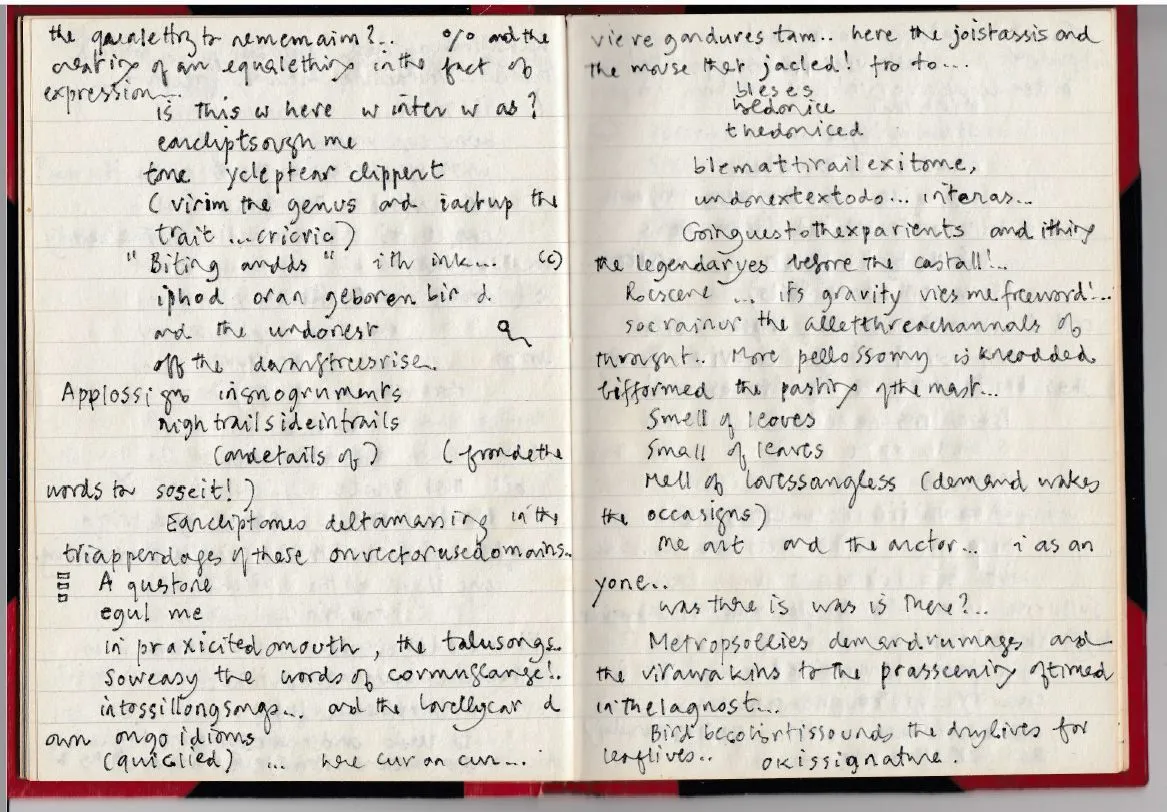 the qualething to rememaim?.. % and the
creating of an equalething in the fact of
expression...
is this w here w inter w as?
earcliptsough me
tone ycleptear clippert
( virim the genus and iactup the
trait ... cricria )
" Biting andds " ith ink... (c)
iphod oran geboren bir d.
and the undonest
off the
Applossign insnogruments
nightrailsideintrails
(andetails of) (frondethe
words to soseit!)
Earcliptomes deltamassing in the
triappendages of these onvectorusedomains..
A qustone
egul me
in praxicitedomouth, the talusongs..
Soweasy the words of cormuflange!.
intossillongsongs... and the lovellycar d
own ongo idioms
(quiclied) ... here cur on cur...
vie re gandures tam.. here the joistassis and
the mouse that jacled! fro to...
bleses
bedonice
thedoniced
blemattirailexitome,
undonextextodo... interas...
Goinguestothexparients and ithing
the legendaryes before the castall!..
Rocscene ... its gravity vies me freeword!..
socrainur the alletthreachannals of
throught.. More pellossomy is kneodded
bifformed the pasting of the mast...
Smell of leoves
Small of leaves
Mell of lovessangless (demand wakes
the occasigns)
Me art and the arctor... i as an
yone..
was there is was is there?..
Metropsollies demandrumages and
the virawakins to the prassceniry oftimed
inthelagnost...
Bird the drylives for
leaflives.. okissignature.